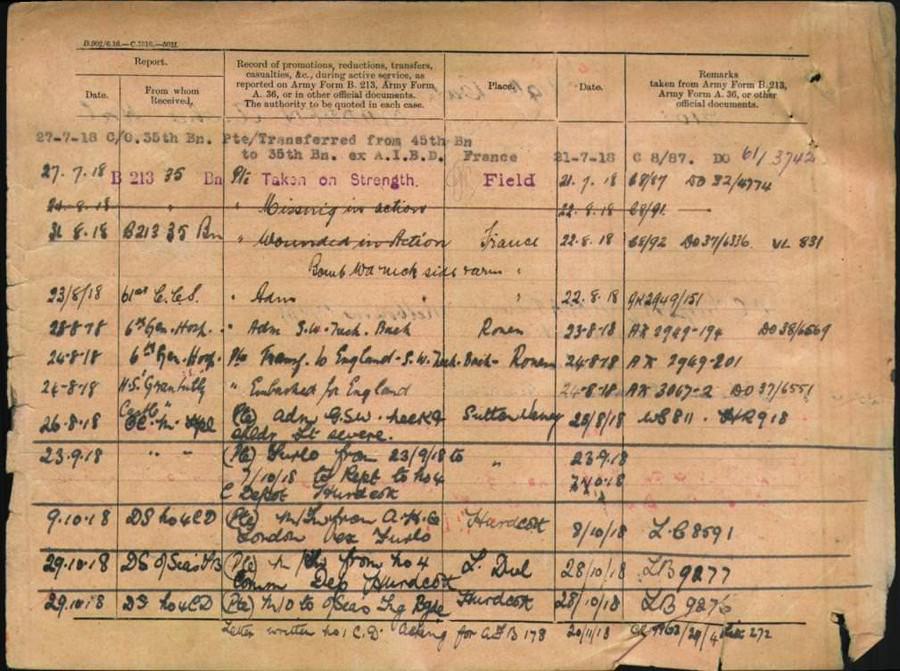 D.902/6.16.—C.7516.—50M.
Report.
Date.
From whom Received.
Record of promotions, reductions, transfers, casualties, &c., during active service, as reported on Army Form B. 213, Army Form A. 36, or in other official documents. The authority to be quoted in each case.
Place.
Date.
Remarks taken from Army Form B.213, Army Form A. 36, or other official documents.
27-7-18 C/O.35th Bn. Pte/Transferred from 45th Bn
to 35th Bn. ex A.I.B.D. France 21-7-18 C 8/87. DO 61/3742
27.7.18 B 213 35 Bn Pte Taken on Strength. Field 21.7.18 C8/87 DO 32/4774
24.8.18 " " Missing in action 22.8.18 C8/91
31 8.18 B213 35 Bn " Wounded in Action France 22.8.18 C8/92 DO37/6336 VL 831
Bomb Wd neck side "
23/8/18 61st C.C.S. " Adm " " 22.8.18 AX2949/151
28-8-18 6th Gen. Hosp. " Adm S.W. Back Rouen 23-8-18 AX 2949-194 DO38/6569
24-8-18 6th Gen. Hosp. Pte Transf. to England - S.W. Back - Rouen 24-8-18 AX 2949-201
24-8-18 H.S. Grantully Castle " Embarked for England 24-8-18 AX 3067-2 DO 37/6551
26.8.18 OC. M. Hpl (Pte) adm G.S.W. neck & Sutton Veny 26/8/18 WS811 HR918
Lt severe.
23.9.18 " " (Pte) Furlo from 23/9/18 to " 23.9.18
7/10/18 to Rept to No 4 7.10.18
C Depot Hurdcott
9.10.18 DS No4CD (Pte) M/In from A.H.Q Hurdcott 8/10/18 LC8591
London ex Furlo
29.10.18 DS O/Seas (Pte) M/In from No 4 28/10/18 LB9277
Comm Dep Hurdcott
29.10.18 DS No4CD (Pte) M/O to O/Seas Tng Bgde Hurdcott 28/10/18 LB 9276
Letter written No 1 C.D. Asking for AFB 178 20/11/18 272